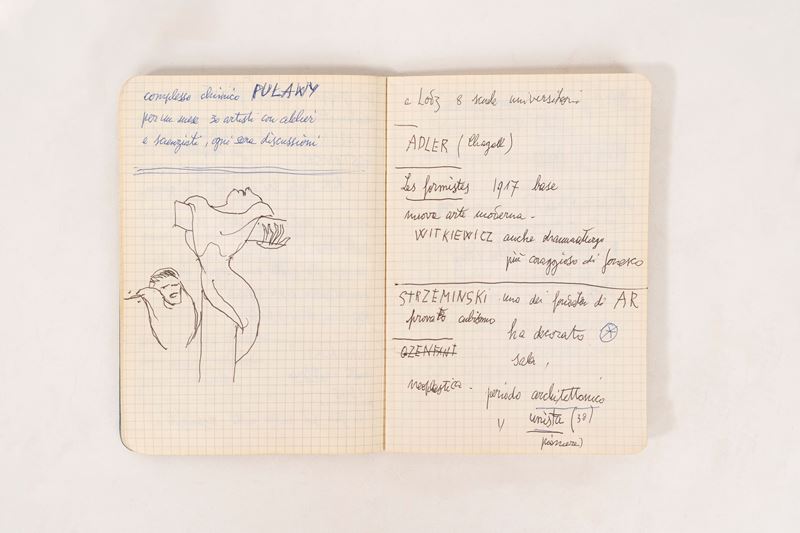 complesso chimico PULAWY
per un mese 30 artisti con atelier
e scienziati, ogni sera discussioni
a Lódz 8 scuole universitarie
ADLER (Chagall)
Les formistes 1917 base
nuova arte moderna -
WITKIEWICZ anche drammaturgo
più coraggioso di Jonesco
STRZEMINSKI uno dei di AR
provato cubismo
ha decorato
OZENFANT
sala,
neoplastica -
periodo architettonico
unista (38)